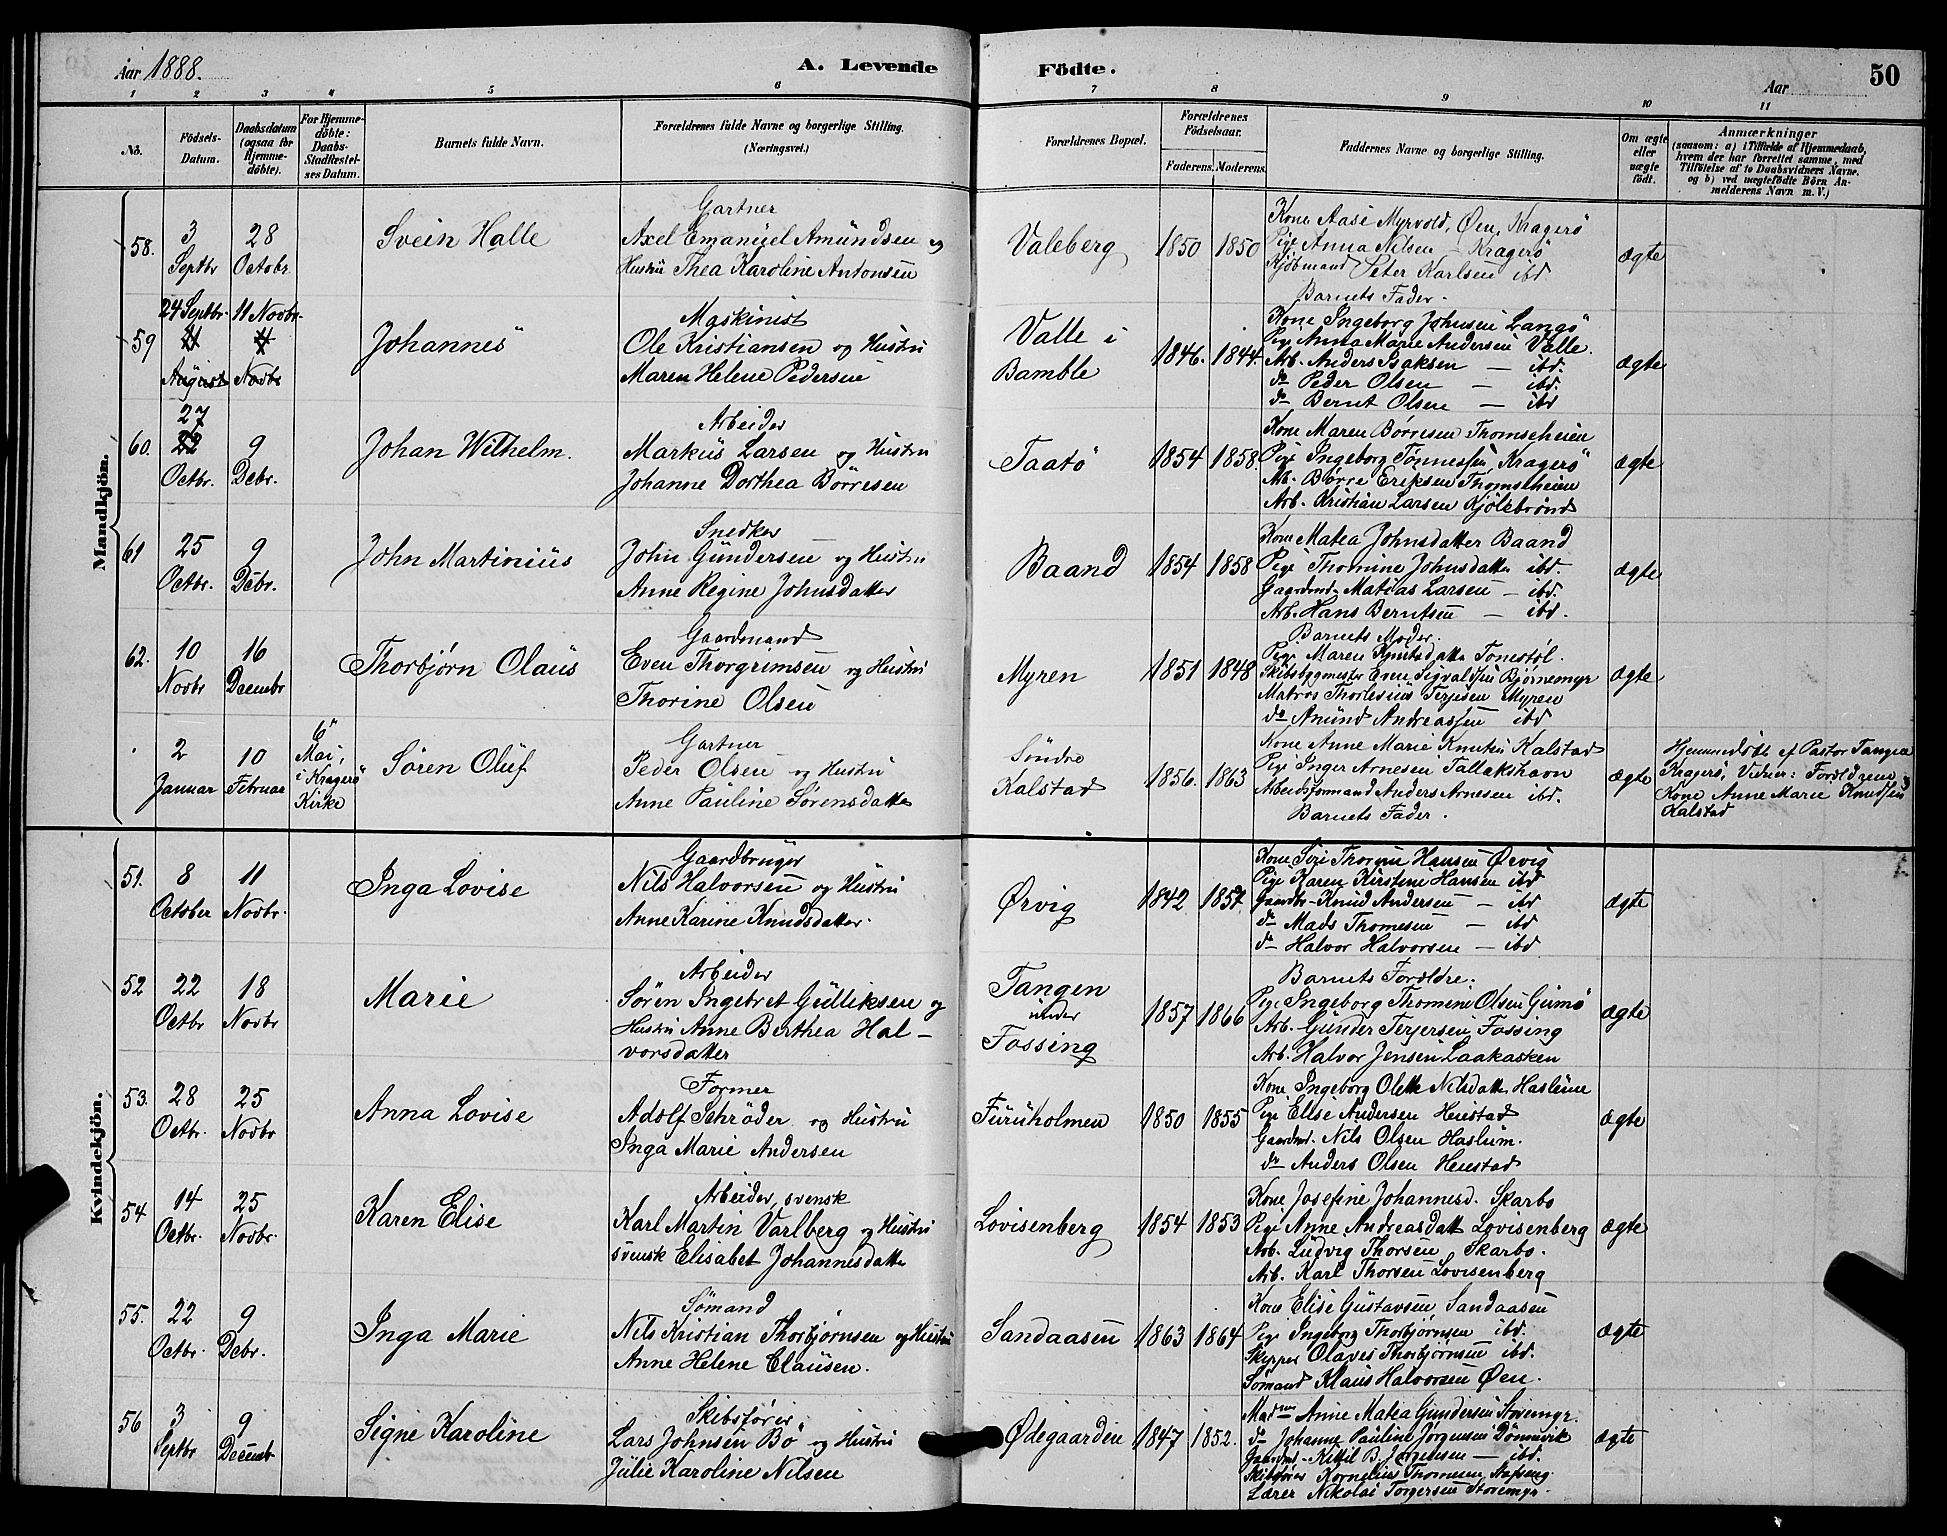 Aar 1888.
A. Levende Födte.
Aar
50
1 2 3 4 5 6 7 8 9 10 11
No.
Födsels-Datum.
Daabsdatum (ogsaa for Hjemme-döbte).
For Hjemme-döbte: Daabs-Stadfæstel-ses Datum.
Barnets fulde Navn.
Forældrenes fulde Navne og borgerlige Stilling. (Næringsvei.)
Forældrenes Bopæl.
Forældrenes Födselsaar.
Faderens. Moderens.
Faddernes Navne og borgerlige Stilling.
Om ægte eller uægte födt.
Anmærkninger
(saasom: a) i Tilfælde af Hjemmedaab,
hvem der har forrettet samme, med
Tilföielse af to Daabsvidners Navne.
og b) ved uægtefödte Börn An-
melderens Navn m. V.)
Mandkjön.
58. 3 Septbr 28 Octobr. Svein Halle
Gartner
Axel Emanuel Amundsen og
Hustru Thea Karoline Antonsen
Valeberg 1850 1850
Kone Aase Myrvold, Øen, Kragerö
Pige Anna Nilsen - Kragerö
Kjöbmand Peter Karlsen ibd
Barnets Fader.
ægte
59 24 Septbr. 11 Novbr.
August Novbr
Johannes
Maskinist
Ole Kristiansen og Hustru
Maren Helene Pedersen
Valle i Bamble 1846. 1844.
Kone Ingeborg Johnsen Langö
Pige Anna Marie Andersen Valle.
Arb. Anders Isaksen — ibd.
do Peder Olsen — ibd.
do Bernt Olsen — ibd
ægte
60. 27 Octbr. 9 Debr. Johan Wilhelm.
Arbeider
Markus Larsen og Hustru
Johanne Dorthea Börresen
Taatö 1854 1858.
Kone Maren Börresen Thomseheien
Pige Ingeborg Tönnessen, Kragerö
Arb. Börre Eriksen Thomseheien
Arb. Kristian Larsen Kjölebrönd
ægte
61 25 Octbr. 9 Debr. John Martinius
Snedker
John Gundersen og Hustru
Anne Regine Johnsdatter
Baand 1854 1858
Kone Matea Johnsdatter Baand
Pige Thomine Johnsdatter ibd.
Gaardmd. Matias Larsen — ibd.
Arb. Hans Berntsen — ibd.
ægte
62. 10 Novbr 16 Decembr Thorbjørn Olaus
Gaardmand
Even Thorgrimsen og Hustru
Thorine Olsen
Myren 1851 1848
Barnets Moder.
Pige Maren Knutsdatt. Tonestöl.
Skibsbygmester Even Sigvaldsen Bjørnemyr
Matros Thorleius Terjesen Myren
do Amund Andreassen ibd
ægte
2 Januar 10 Februar 6 Mai, i Kragerö Kirke
Sören Oluf
Gartner
Peder Olsen og Hustru
Anne Pauline Sörensdatter
Söndre Kalstad 1856. 1863
Kone Anne Marie Knutsen Kalstad
Pige Inger Arnesen Tallakshavn
Arbeidsformand Anders Arnesen ibd.
Barnets Fader.
ægte
Hjemmedöbt af Pastor Tangen
Kragerö, Vidner: Forældrene,
Kone Anne Marie Knudsen
Kalstad
Kvindekjön.
51. 8 October 11 Novbr. Inga Lovise
Gaardbruger
Nils Halvorsen og Hustru
Anne Karine Knudsdatter.
Ørvig 1842 1857.
Kone Siri Thorine Hansen Ørvig
Pige Karen Kirstine Hansen ibd
Gaardbr. Knud Andersen — ibd
do Mads Thomesen — ibd
do Halvor Halvorsen — ibd
ægte
52 22 Octbr 18 Novbr Marie
Arbeider
Sören Ingebret Gulliksen og
Hustru Anne Berthea Hal-
vorsdatter
Tangen under Fossing 1857 1866
Barnets Forældre:
Pige Ingeborg Thomine Olsen Gumö
Arb. Gunder Terjersen, Fossing
Arb. Halvor Jensen Laakasken
ægte
53. 28 Octbr. 25 Novbr Anna Lovise
Former
Adolf Schröder og Hustru
Inga Marie Andersen
Furuholmen 1850 1855
Kone Ingeborg Oletta Nilsdatter Haslum
Pige Elise Andersen Heiestad
Gaardmd. Nils Olsen Haslum.
do Anders Olsen Heiestad
ægte
54 14 Octbr. 25 Novbr. Karen Elise
Arbeider, svensk
Karl Martin Varlberg og Hustru
svensk Elisabet Johannesdatter
Lovisenberg 1854 1853
Kone Josefine Johannesd. Skarbo
Pige Anne Andreasdatt. Lovisenberg
Arb. Ludvig Thorsen, Skarbo.
Arb. Karl Thorsen Lovisenberg
ægte
55. 22 Octbr. 9 Debr. Inga Marie
Sömand
Nils Kristian Thorbjørnsen og Hustru
Anne Helene Clausen.
Sandaasen 1863 1864
Kone Elise Gustavsen, Sandaasen
Pige Ingeborg Thorbjørnsen ibd.
Skipper Olaves Thorbjørnsen ibd.
Sömand Klaus Halvorsen Øen.
ægte
56 3 Septbr 9 Decembr Signe Karoline
Skibsförer
Lars Johnsen Bö og Hustru
Julie Karoline Nilsen
Ødegaarden 1847 1852.
Madme Anne Matea Gundersen Storemyr.
do Johanne Pauline Jørgensen Dönnevik
Gaardmd. Kittil B. Jørgensen — ibd.
Skibsförer Kornelius Thomesen
Lærer Nikolai Torgersen Storemyr.
ægte